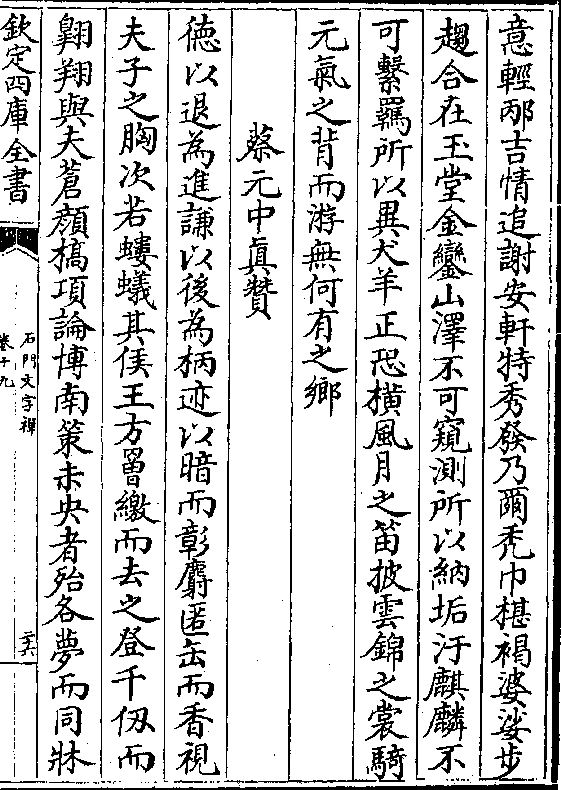 意輕邴吉情追謝安軒特秀發乃爾禿巾椹褐婆娑步
趨合在玉堂金鑾山澤不可窺測所以納垢汙麒麟不
可繫羈所以異犬羊正恐橫風月之笛披雲錦之裳騎
元氣之背而游無何有之鄉
蔡元中真贊
徳以退為進謙以後為柄迹以暗而彰麝匿缶而香視
夫子之胸次若螻蟻其侯王方罾繳而去之登千仭而
翺翔與夫蒼顔槁項論博南策未央者殆各夢而同牀
欽定四庫全書
石門文字禪
卷十九
二六